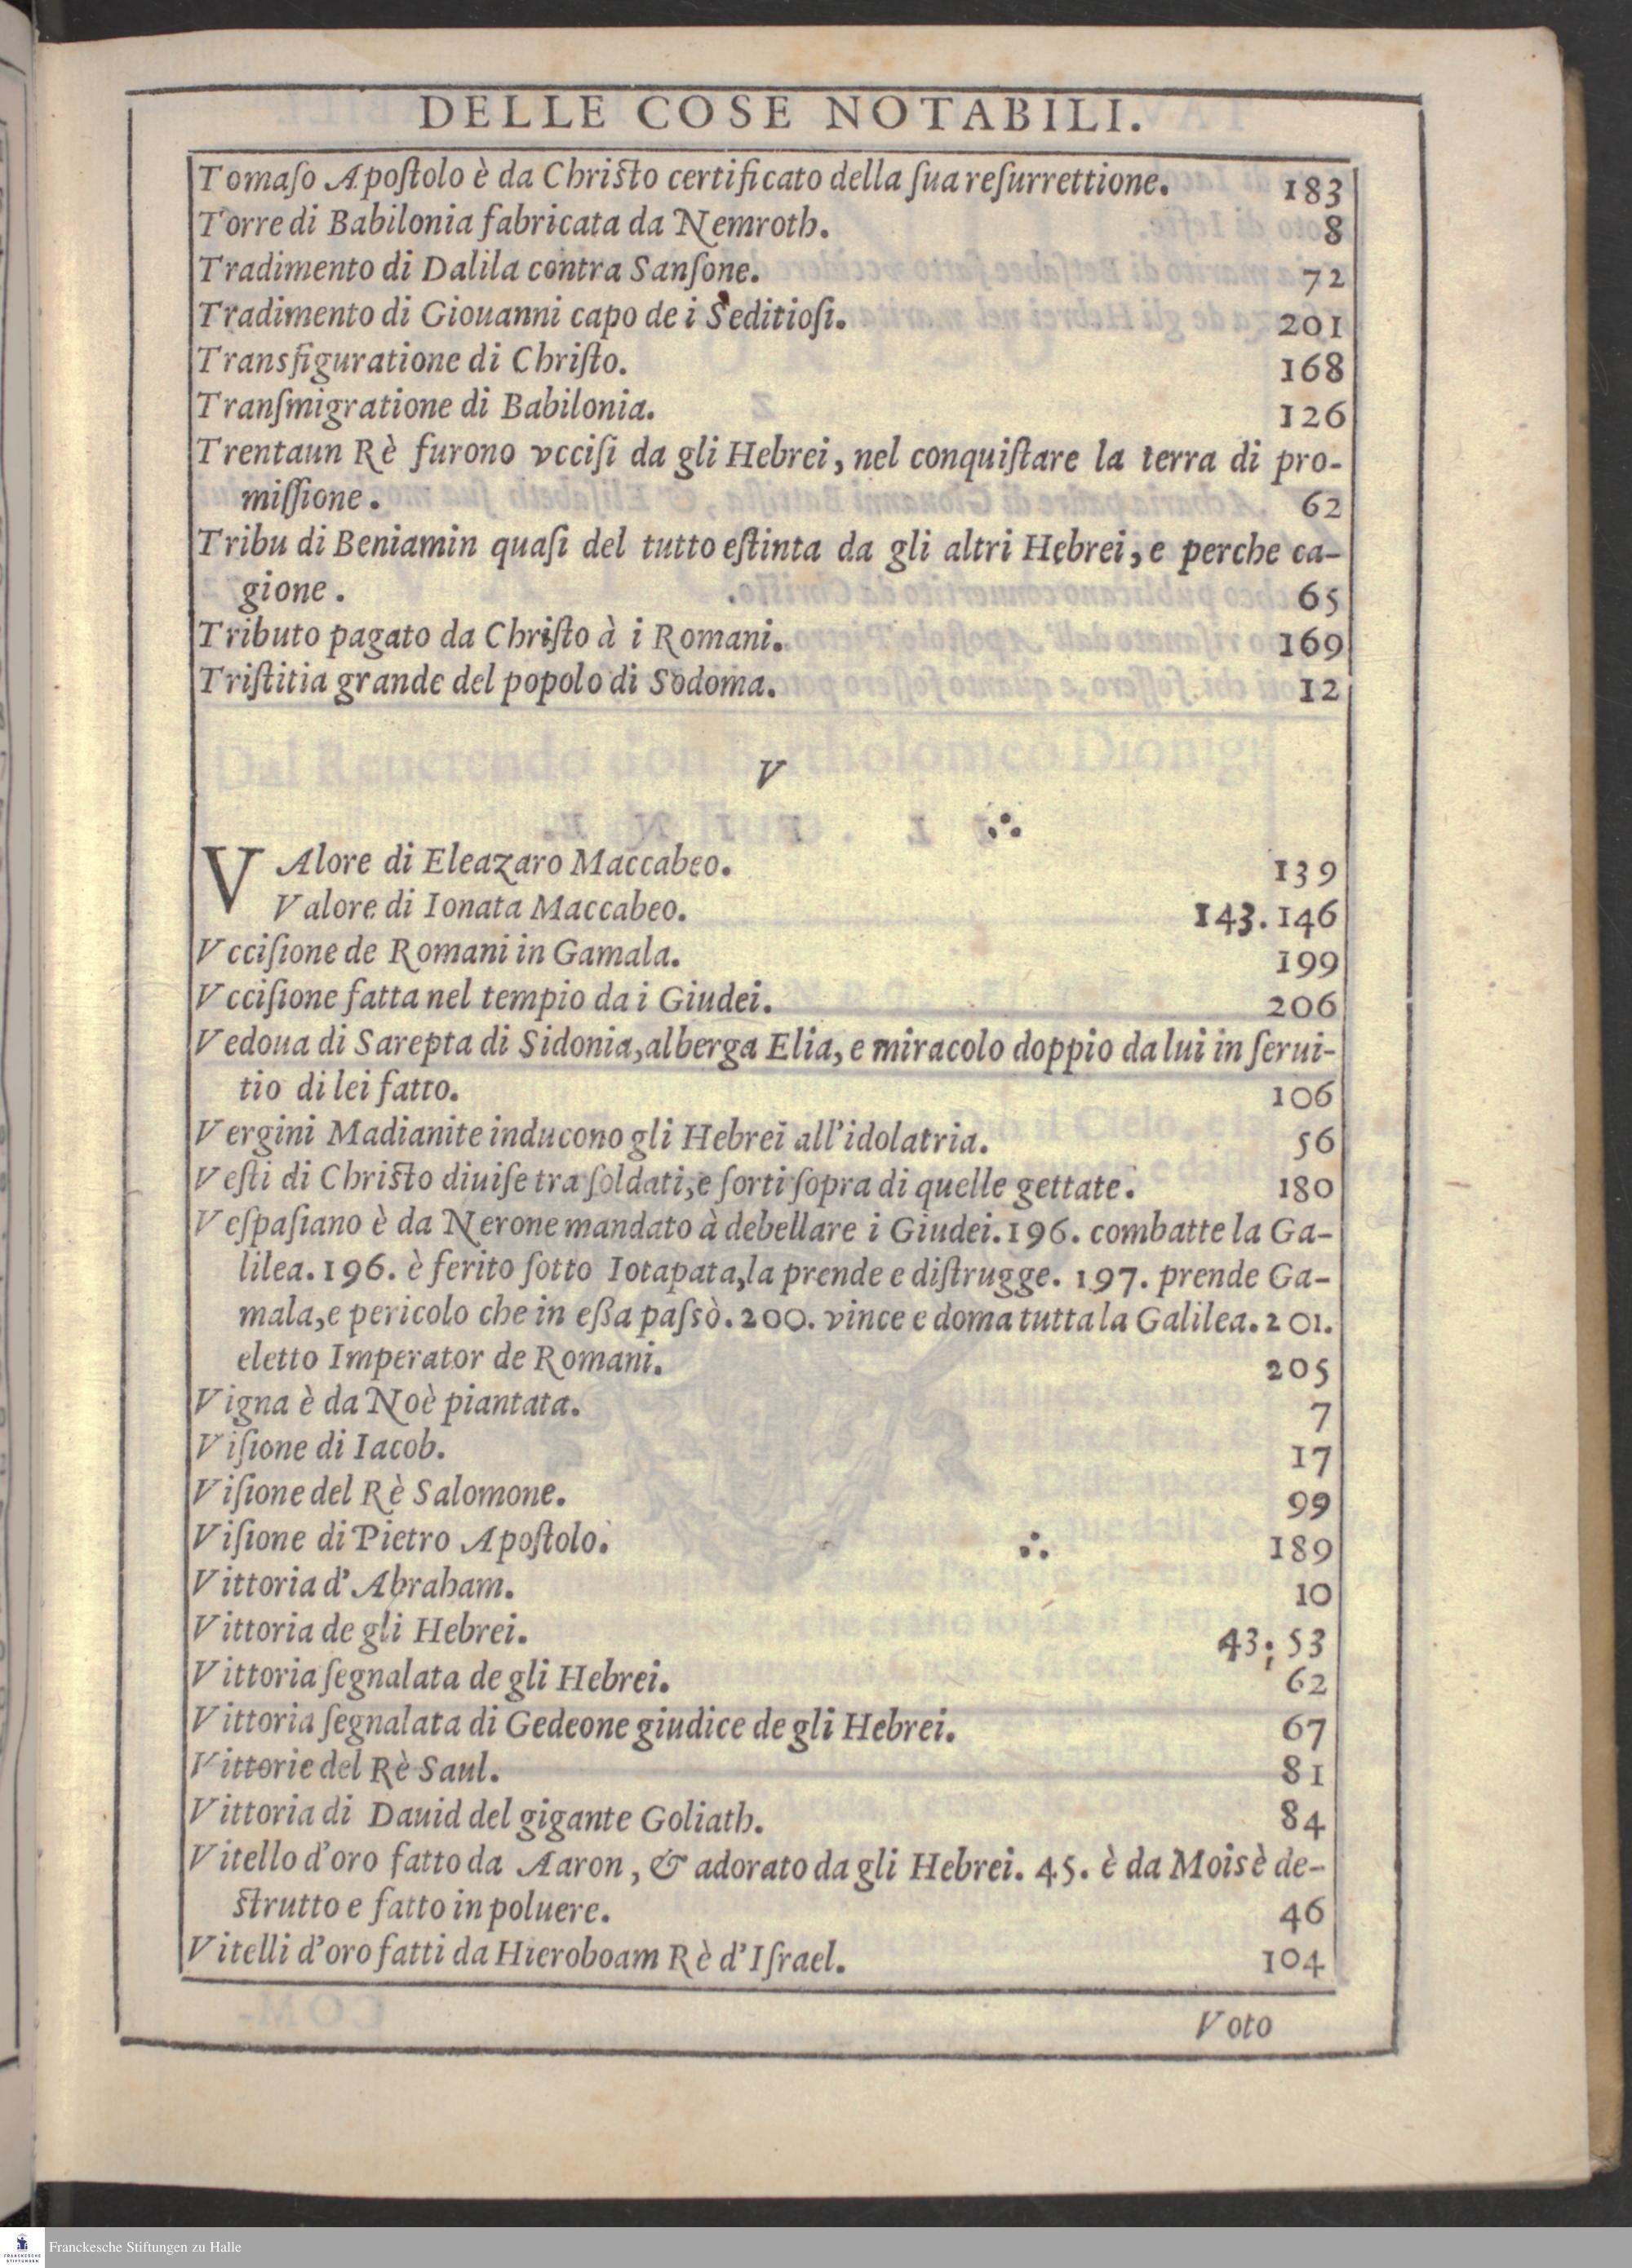 DELLE COSE NOTABILI.
Tomaſo Apoſtolo è da Chriſto certificato della ſua reſurrettione. 183
Torre di Babilonia fabricata da Nemroth. 8
Tradimento di Dalila contra Sanſone. 72
Tradimento di Giouanni capo de i Seditioſi. 201
Transfiguratione di Chriſto. 168
Tranſmigratione di Babilonia. 126
Trentaun Rè furono vcciſi da gli Hebrei, nel conquiſtare la terra di pro-
miſſione. 62
Tribu di Beniamin quaſi del tutto eſtinta da gli altri Hebrei, e perche ca-
gione. 65
Tributo pagato da Chriſto à i Romani. 169
Triſtitia grande del popolo di Sodoma. 12
V
VAlore di Eleazaro Maccabeo. 139
Valore di Ionata Maccabeo. 143. 146
Vcciſione de Romani in Gamala. 199
Vcciſione fatta nel tempio da i Giudei. 206
Vedoua di Sarepta di Sidonia, alberga Elia, e miracolo doppio da lui in ſerui-
tio di lei fatto. 106
Vergini Madianite inducono gli Hebrei all'idolatria. 56
Veſti di Chriſto diuiſe tra ſoldati, e ſorti ſopra di quelle gettate. 180
Veſpaſiano è da Nerone mandato à debellare i Giudei. 196. combatte la Ga-
lilea. 196. è ferito ſotto Iotapata, la prende e diſtrugge. 197. prende Ga-
mala, e pericolo che in eßa paſsò. 200. vince e doma tutta la Galilea. 201.
eletto Imperator de Romani. 205
Vigna è da Noè piantata. 7
Viſione di Iacob. 17
Viſione del Rè Salomone. 99
Viſione di Pietro Apoſtolo. 189
Vittoria d'Abraham. 10
Vittoria de gli Hebrei. 43; 53
Vittoria ſegnalata de gli Hebrei. 62
Vittoria ſegnalata di Gedeone giudice de gli Hebrei. 67
Vittorie del Rè Saul. 81
Vittoria di Dauid del gigante Goliath. 84
Vitello d'oro fatto da Aaron, & adorato da gli Hebrei. 45. è da Moisè de-
ſtrutto e fatto in poluere. 46
Vitelli d'oro fatti da Hieroboam Rè d'Iſrael. 104
Voto
Franckesche Stiftungen zu Halle